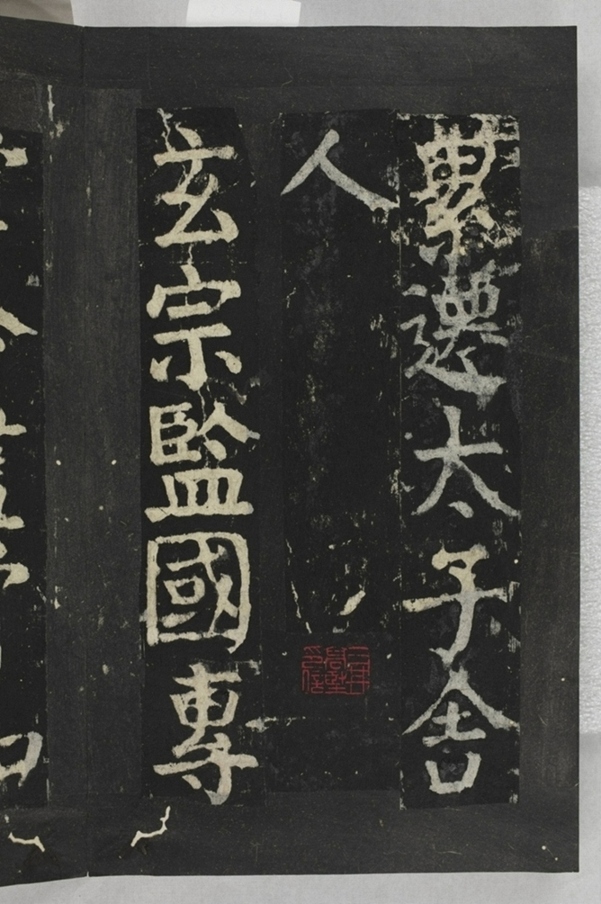 累遷太子舍
人
玄宗監國專